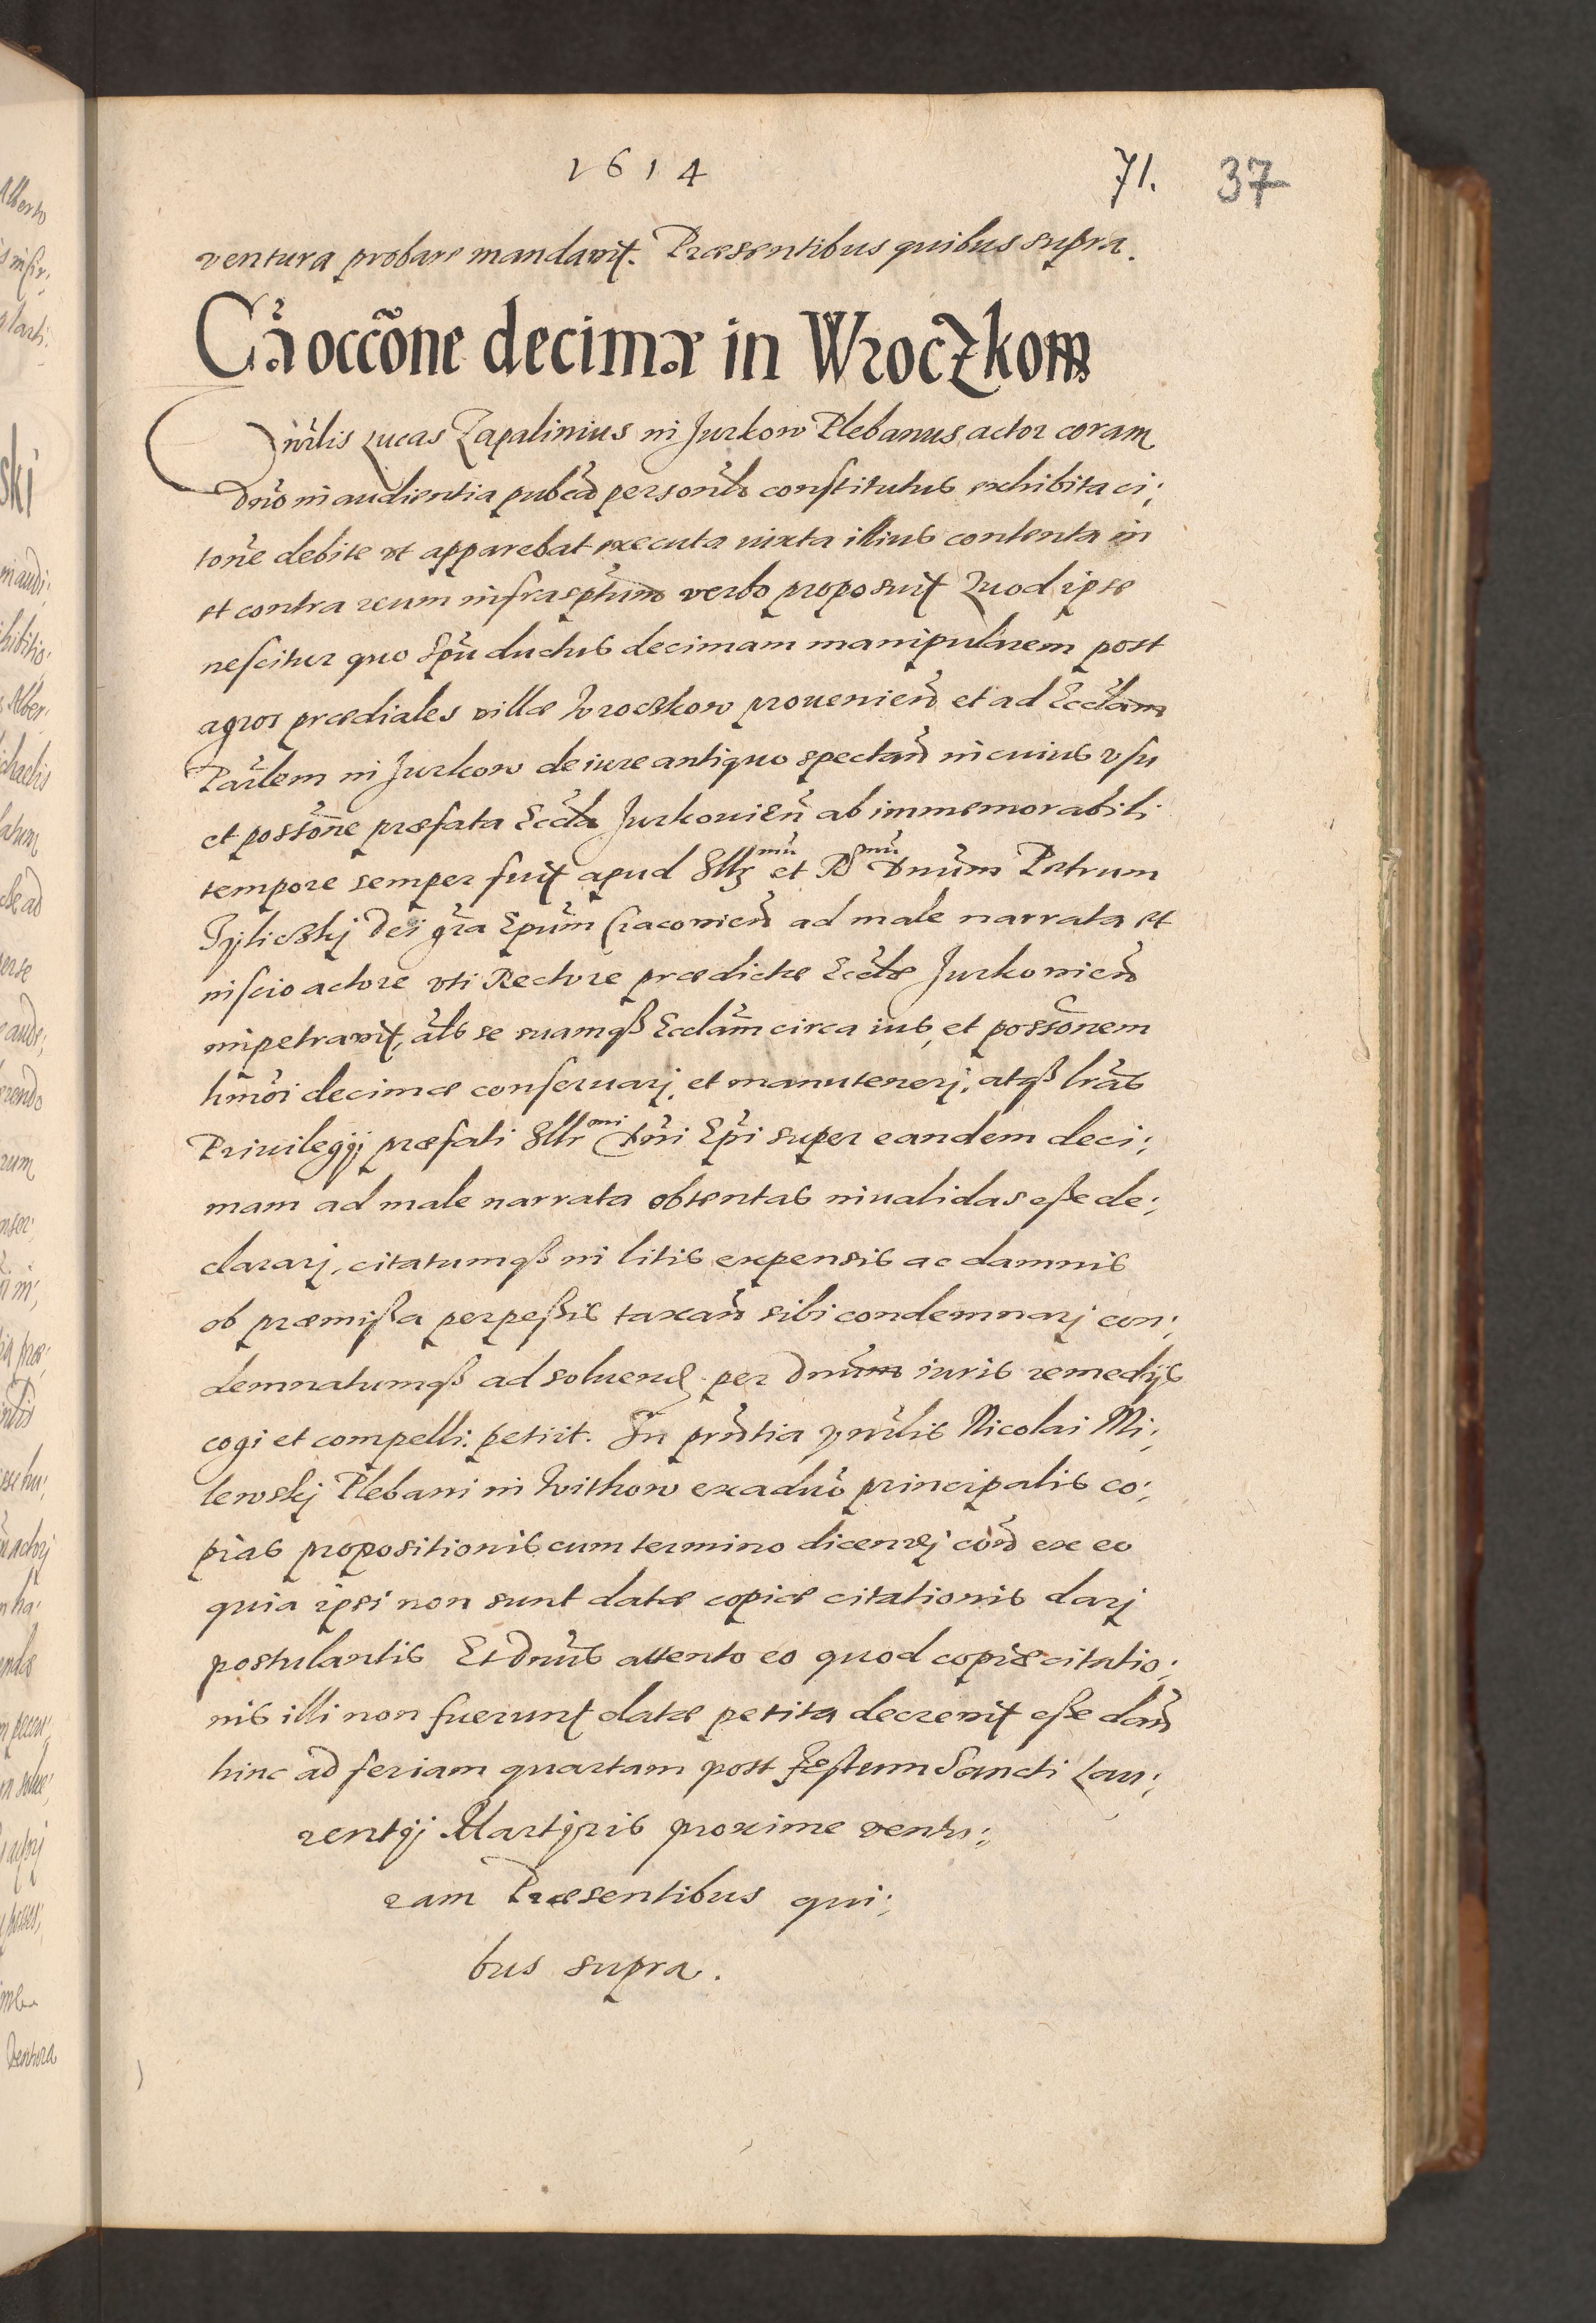 1614
71. 37
ventura probare mandavit. Præsentibus quibus supra.
Cã occõne decimæ in Wroczkow
Vñrlis Lucas Zapalinius in Jurkow Plebanus actor coram
Dnõ in audientia pubca personlr constitutus exhibita ci;
tone debite ut apparebat executa iuxta illius contenta in
et contra reum infrasptum verbo proposuit Quod ipse
nescitur quo spũ ductus decimam manipularem post
agros prædiales villæ Wroczkow provenien et ad Eccłam
Parłem in Jurkow de iure antiquo spectan in cuius usu
et possone præfata Eccła Jurkovien ab immemorabili
tempore semper fuit apud Illr mũ et Rd mũ Dnum Petrum
Tylickj Dei gra Epum Cracovien ad male narrata et
inscio actore uti Rectore prædictæ Eccłæ Jurkovien
impetravit, als se suamqß Eccłam circa ius, et possonem
hmoi decimæ conservarj, et manutenerj, atqß lras
Privilegij præfati Illr mi Dni Epi super eandem deci;
mam ad male narrata obtentas invalidas eße de;
clararj, citatumqß in litis expensis ac damnis
ob præmißa perpeßis taxan sibi condemnarj con;
demnatumqß ad solvend per Dnum iuris remedijs
cogi et compelli. petijt. In prntia Vnrlis Nicolai Mi;
lewskj Plebani in Withow ex aduo principalis co;
pias propositionis cum termino dicendj con ex eo
quia ipsi non sunt datæ copiæ citationis darj
postulantis Et Dnus attento eo quod copiæ citatio;
nis illi non fuerunt datæ petita decrevit eße dan
hinc ad feriam quartam post festum Sancti Lau;
rentij Martyris proxime ventu;
ram Præsentibus qui;
bus supra.